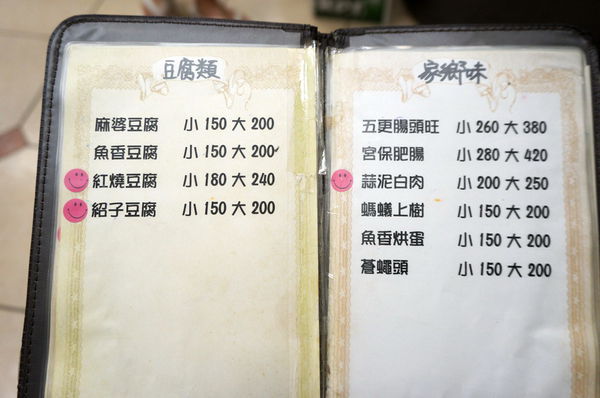 豆腐類
麻婆豆腐 小 150 大 200
魚香豆腐 小 150 大 200
紅燒豆腐 小 180 大 240
紹子豆腐 小 150 大 200
家鄉味
五更腸頭旺 小 260 大 380
宮保肥腸 小 280 大 420
蒜泥白肉 小 200 大 250
螞蟻上樹 小 150 大 200
魚香烘蛋 小 150 大 200
蒼蠅頭 小 150 大 200